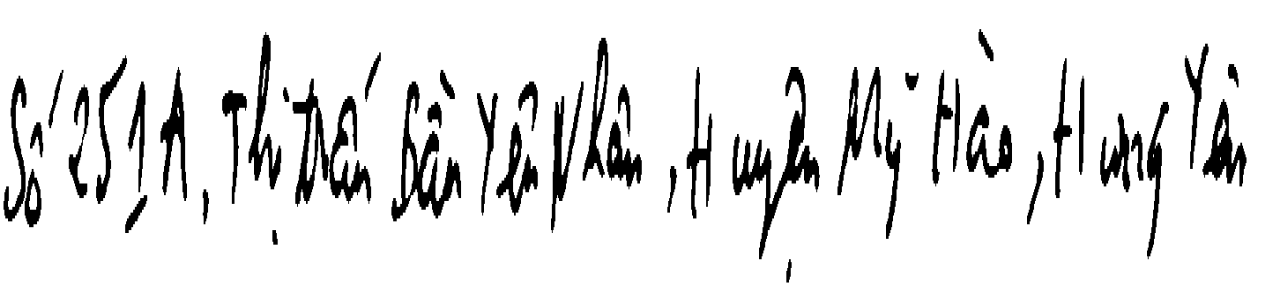 Số 251A, Thị Trấn Bần Yên Nhân, Huyện Mỹ Hào, Hưng Yên